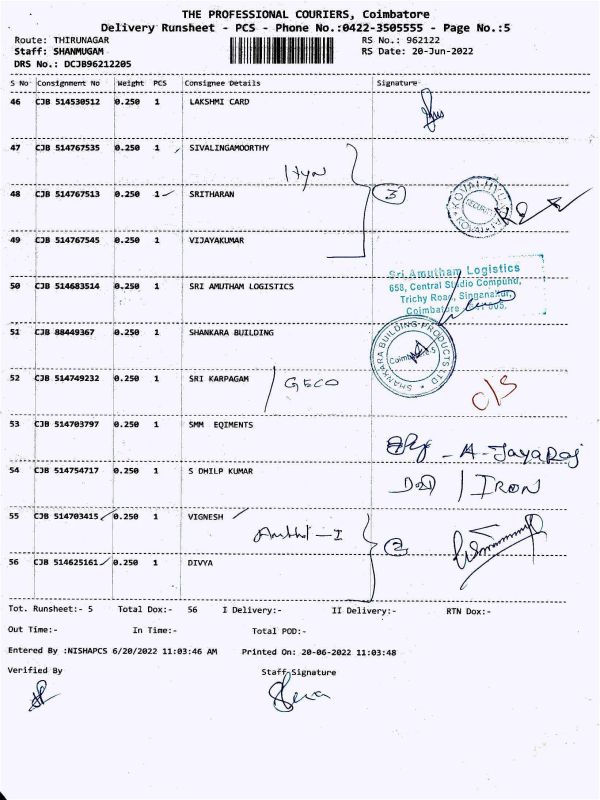 THE PROFESSIONAL COURIERS, Coimbatore
Delivery Runsheet - PCS - Phone No.:0422-3505555 - Page No.:5
Route: THIRUNAGAR RS No.: 962122
Staff: SHANMUGAM RS Date: 20-Jun-2022
DRS No.: DCJB96212205
S No Consignment No Weight PCS Consignee Details Signature
46 CJB 514530512 0.250 1 LAKSHMI CARD
47 CJB 514767535 0.250 1 SIVALINGAMOORTHY
48 CJB 514767513 0.250 1 SRITHARAN 3
SECURITY
49 CJB 514767545 0.250 1 VIJAYAKUMAR
Sri Amutham Logistics
50 CJB 514683514 0.250 1 SRI AMUTHAM LOGISTICS 658, Central Studio Compund,
Trichy Road, Singanallur,
Coimbatore
51 CJB 88449367 0.250 1 SHANKARA BUILDING
SHANKARA BUILDING PRODUCTS LTD
Coimbatore
52 CJB 514749232 0.250 1 SRI KARPAGAM GECO
53 CJB 514703797 0.250 1 SMM EQIMENTS
A. Jayaraj
54 CJB 514754717 0.250 1 S DHILP KUMAR IRON
55 CJB 514703415 0.250 1 VIGNESH
2
56 CJB 514625161 0.250 1 DIVYA
Tot. Runsheet:- 5 Total Dox:- 56 I Delivery:- II Delivery:- RTN Dox:-
Out Time:- In Time:- Total POD:-
Entered By :NISHAPCS 6/20/2022 11:03:46 AM Printed On: 20-06-2022 11:03:48
Verified By Staff Signature